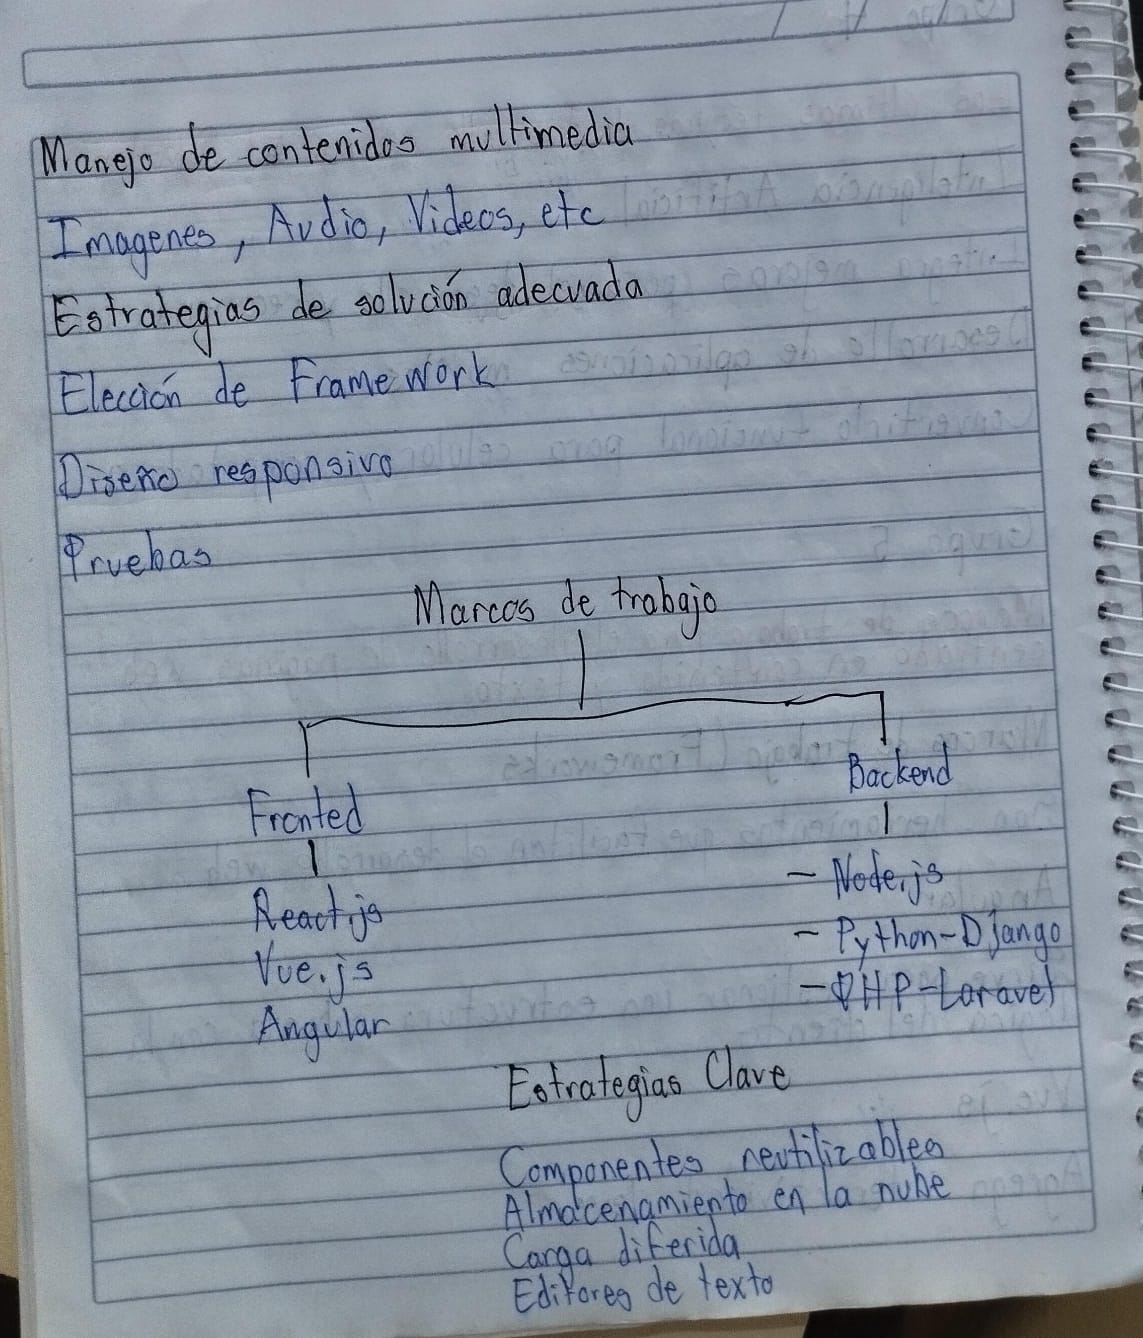 Manejo de contenidos multimedia
Imagenes, Audio, Videos, etc
Estrategias de solución adecuada
Elección de Framework
Diseño responsivo
Pruebas
Marcos de trabajo
Fronted
Backend
React.js
Vue.js
Angular
- Node.js
- Python-Django
- PHP-Laravel
Estrategias Clave
Componentes reutilizables
Almacenamiento en la nube
Carga diferida
Editores de texto